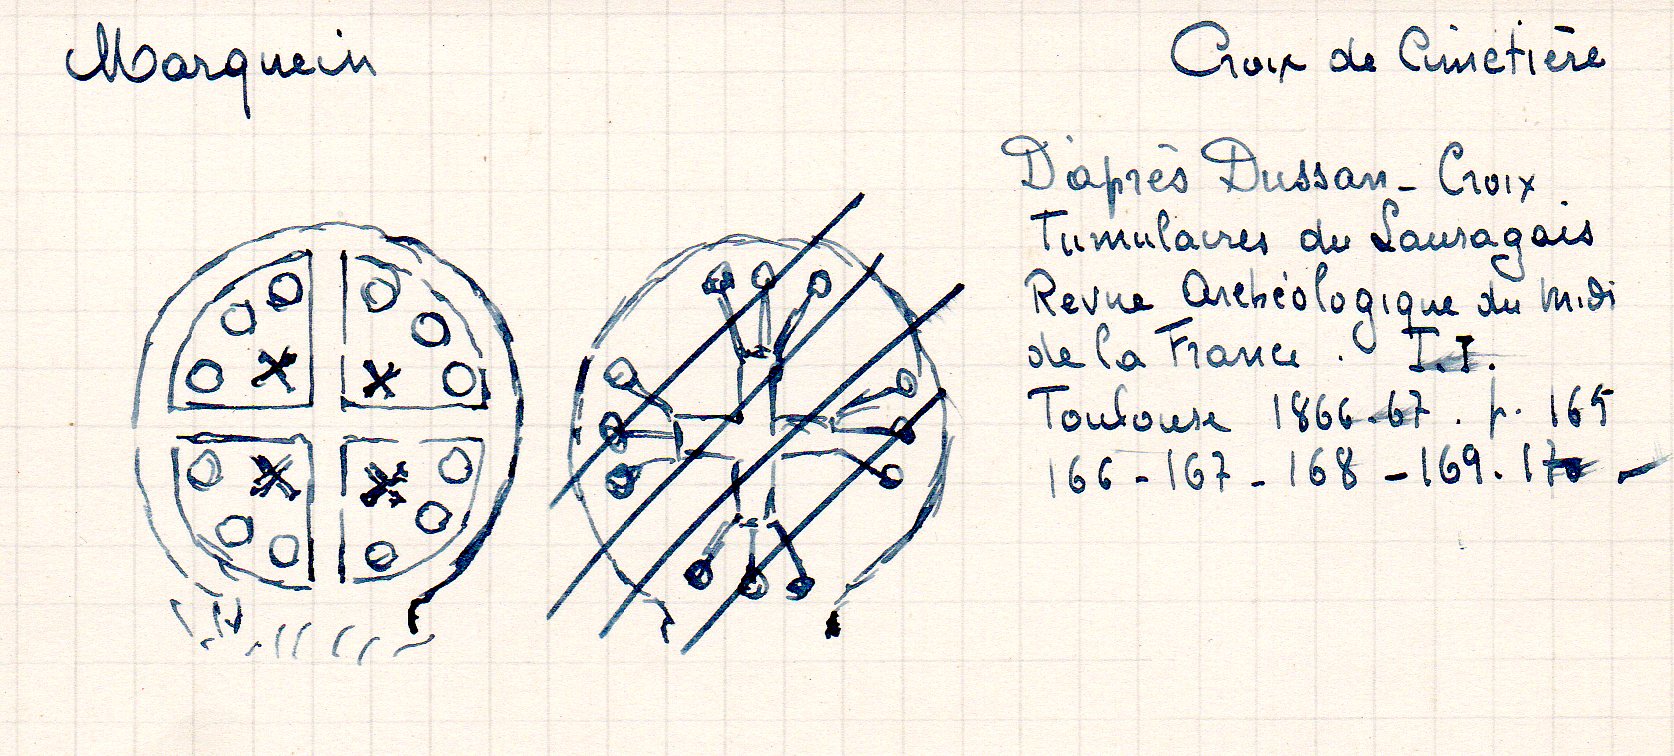 Marquein
Croix de Cimetière
D'après Dussan - Croix
Tumulaires du Lauragais
Revue Archéologique du Midi
de la France . T.I.
Toulouse 1866-67 . p. 165
166 - 167 - 168 - 169. 170 -